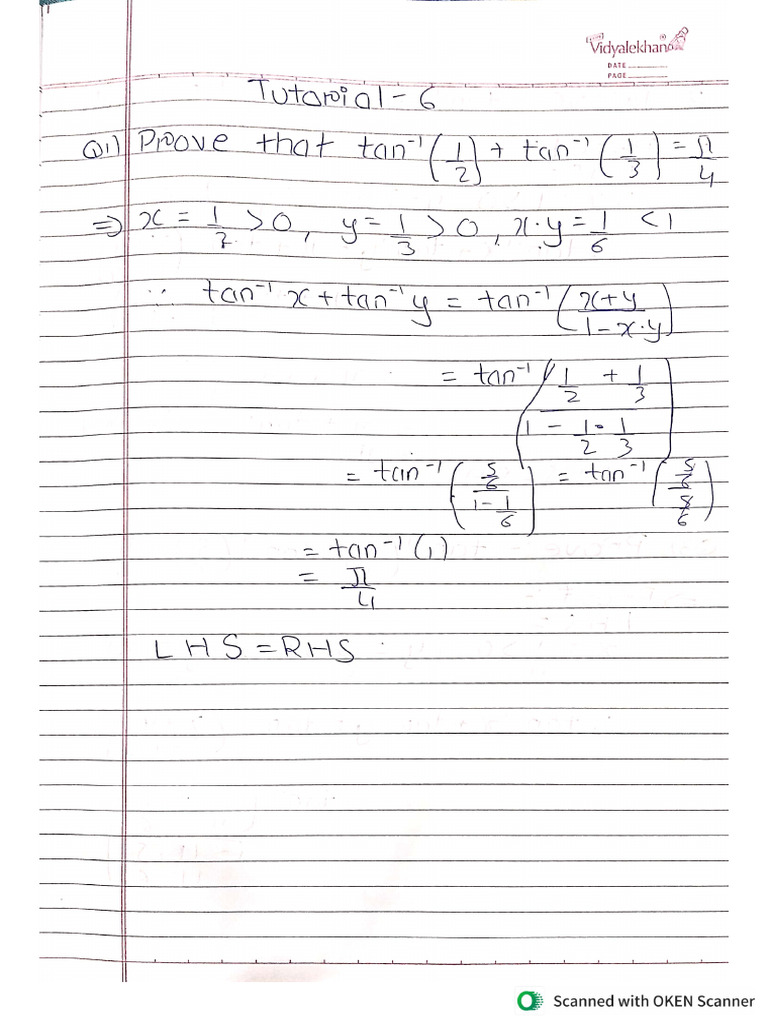 Vidyalekhan
DATE
PAGE
Tutorial-6
Q1) Prove that tan⁻¹(1/2) + tan⁻¹(1/3) = π/4
⇒ x = 1/2 > 0, y = 1/3 > 0, x·y = 1/6 < 1
∵ tan⁻¹ x + tan⁻¹ y = tan⁻¹((x+y)/(1-x·y))
= tan⁻¹((1/2 + 1/3)/(1 - 1/2·1/3))
= tan⁻¹((5/6)/(1-1/6)) = tan⁻¹((5/6)/(5/6))
= tan⁻¹(1)
= π/4
LHS = RHS
Scanned with OKEN Scanner